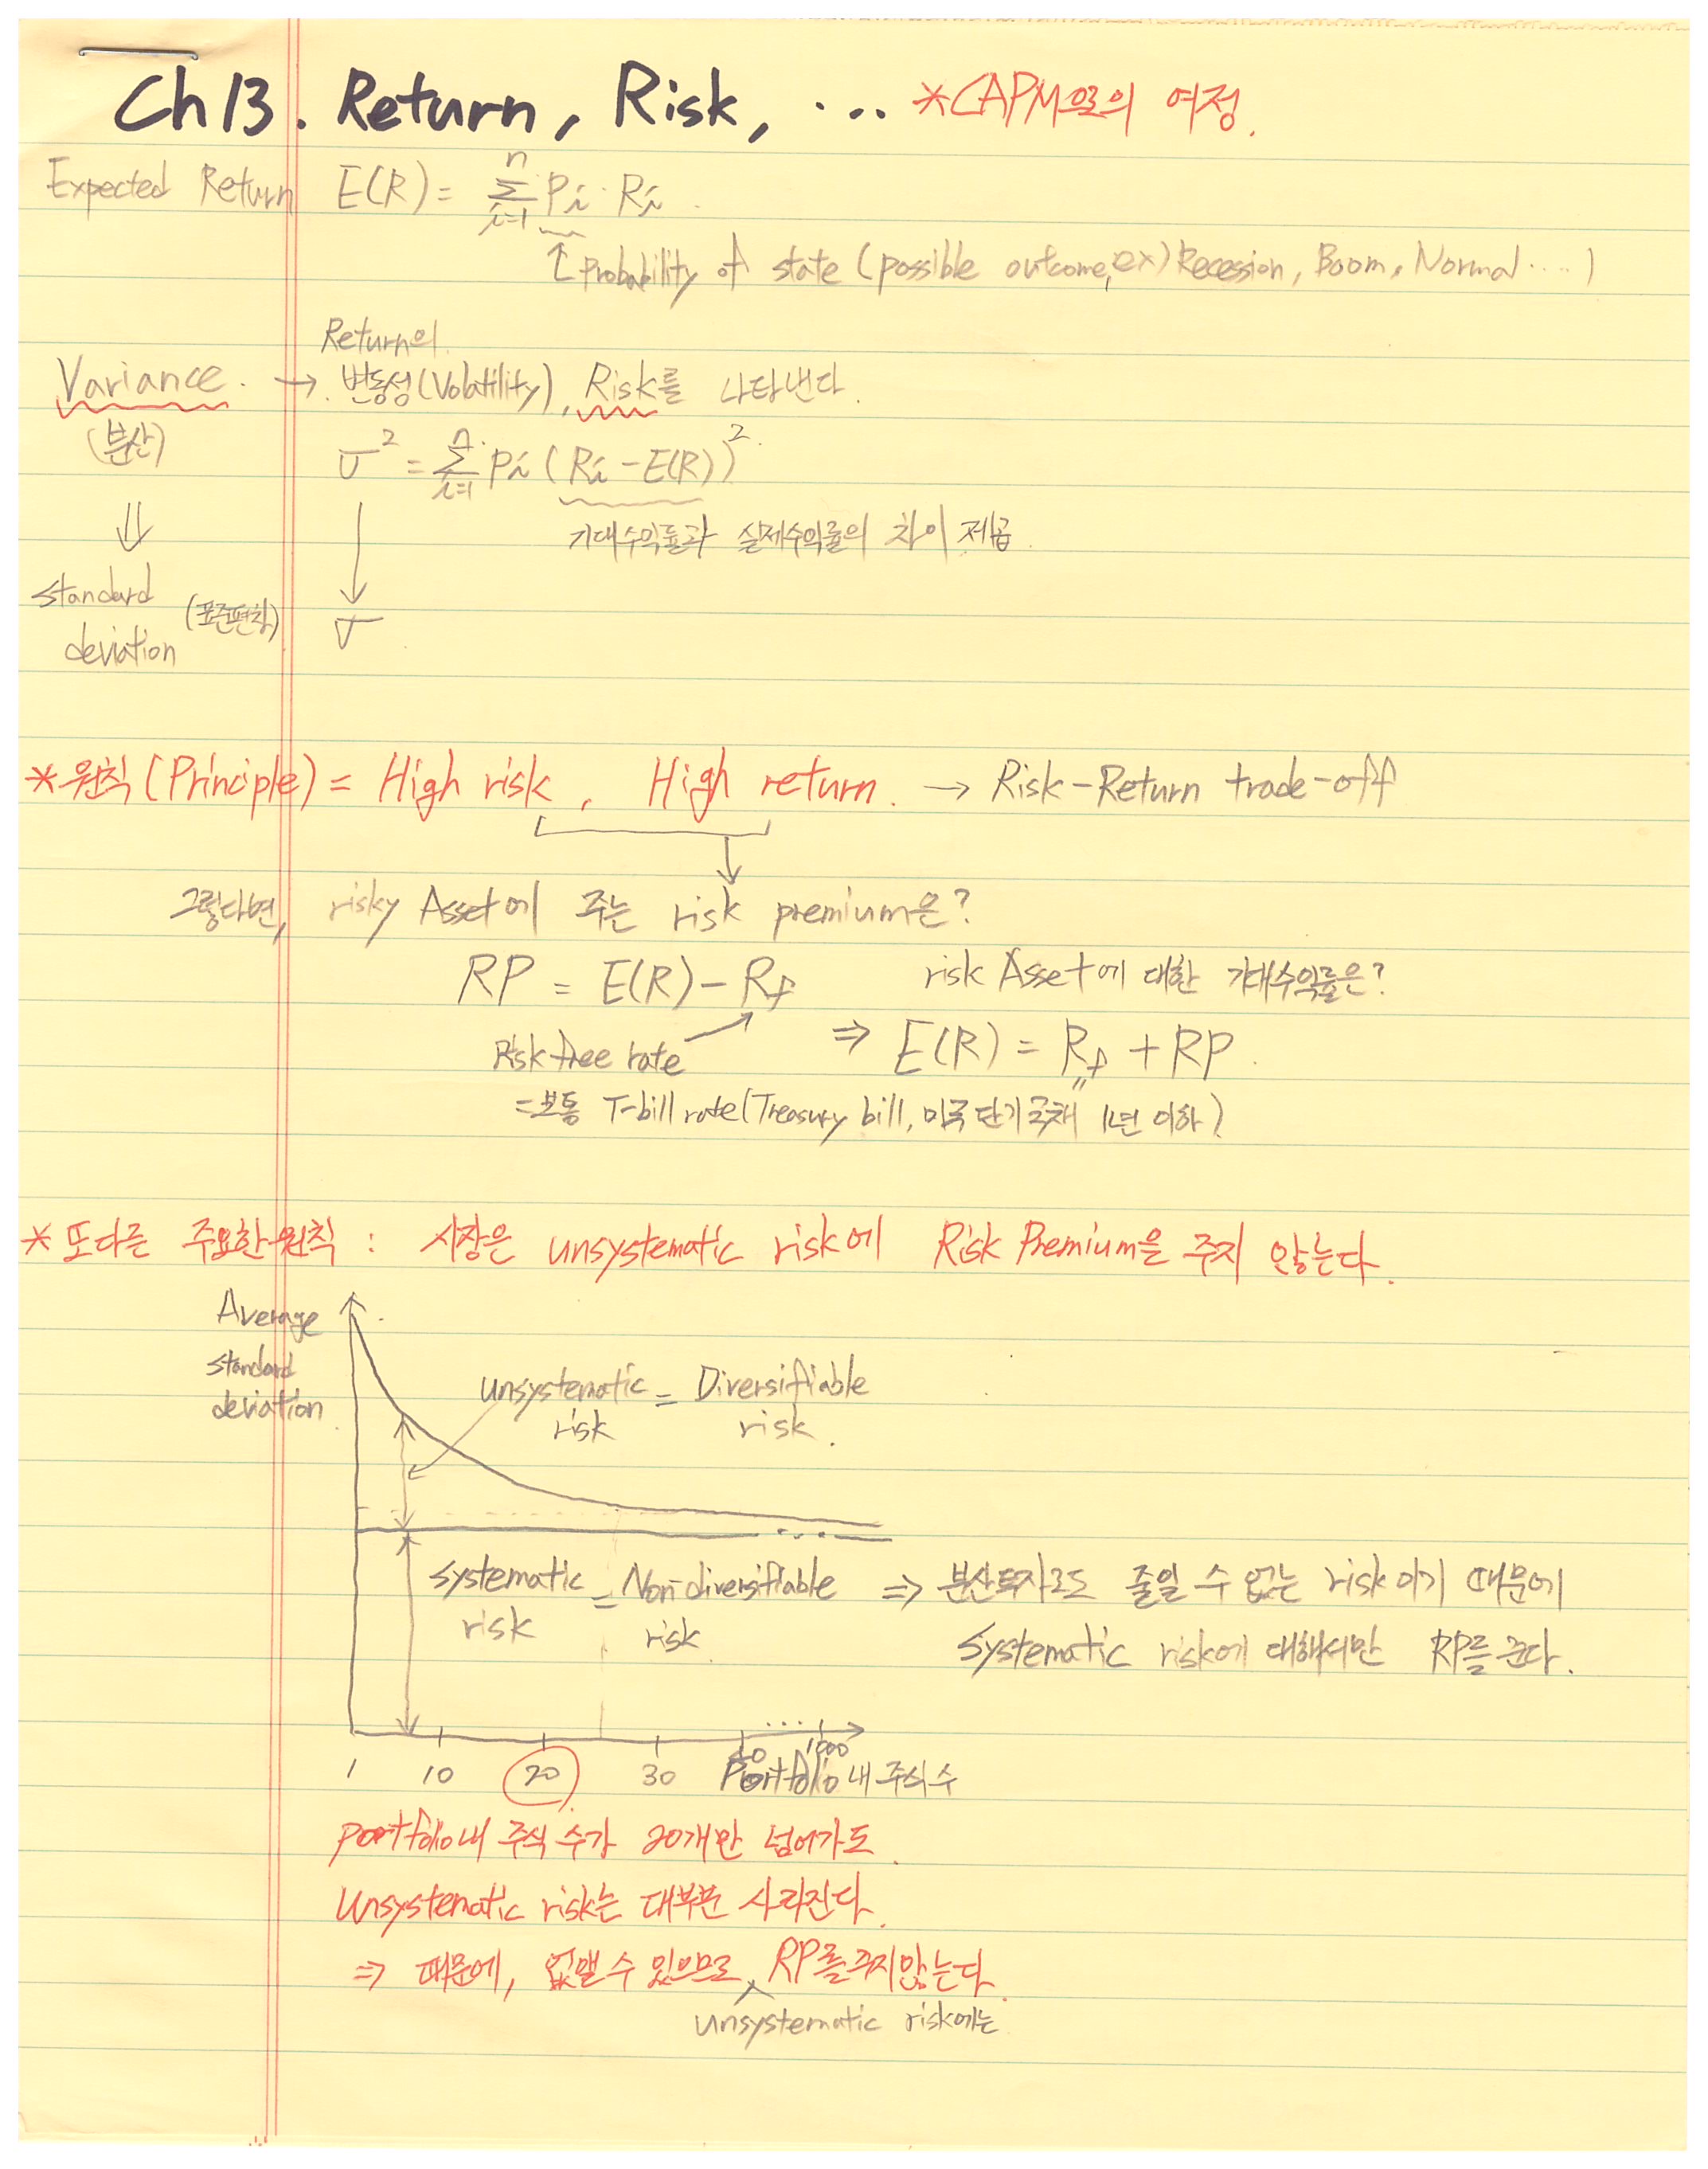 Ch 13. Return, Risk, ... *CAPM으로의 여정.
Expected Return E(R) = n Σ i=1 Pi · Ri
↑ Probability of state (possible outcome, ex) Recession, Boom, Normal ....)
Return의
Variance. → 변동성(Volatility), Risk를 나타낸다.
(분산)
σ² = n Σ i=1 Pi (Ri - E(R))²
기대수익률과 실제수익률의 차이 제곱
standard deviation (표준편차) σ
*원칙 (Principle) = High risk, High return. → Risk-Return trade-off
그렇다면, risky Asset에 주는 risk premium은?
RP = E(R) - Rf
risk Asset에 대한 기대수익률은?
Risk free rate
⇒ E(R) = Rf + RP.
= 보통 T-bill rate (Treasury bill, 미국 단기 국채 1년 이하)
* 또다른 주요한 원칙 : 시장은 unsystematic risk에 Risk Premium을 주지 않는다.
Average
standard
deviation
unsystematic risk = Diversifiable risk.
systematic risk = Non-diversifiable risk.
⇒ 분산투자로도 줄일 수 없는 risk이기 때문에
systematic risk에 대해서만 RP를 준다.
1 10 20 30 ... 1000
Portfolio 내 주식 수
portfolio 내 주식 수가 20개만 넘어가도
Unsystematic risk는 대부분 사라진다.
⇒ 때문에, 없앨 수 있으므로 RP를 주지않는다.
unsystematic risk에는